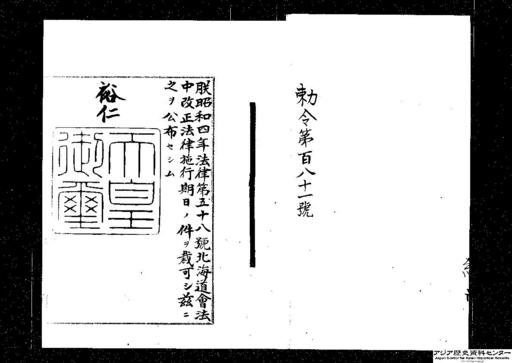 勅令第百八十一號
朕昭和四年法律第五十八號北海道會法
中改正法律施行期日ノ件ヲ裁可シ茲ニ
之ヲ公布セシム
裕仁
天皇
御璽
アジア歴史資料センター
Japan Center for Asian Historical Records